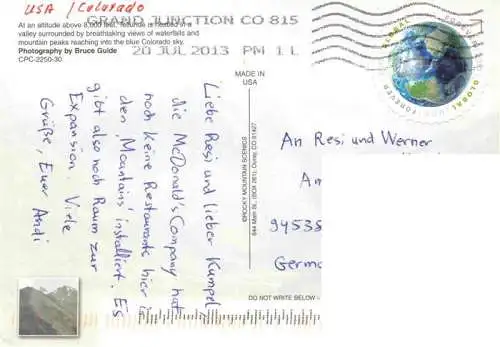 USA / Colorado
At an altitude above 8,000 feet, Telluride is nestled in a
valley surrounded by breathtaking views of waterfalls and
mountain peaks reaching into the blue Colorado sky.
Photography by Bruce Guide
CPC-2250-30
GRAND JUNCTION CO 815
20 JUL 2013 PM 1 L
MADE IN
USA
GLOBAL FOREVER
Liebe Resi und lieber Kumpel,
die McDonald's Company hat
noch keine Restaurante hier in
den 'Mountains' installiert. Es
gibt also noch Raum zur
Expansion. Viele
Grüße, Euer Andi
©ROCKY MOUNTAIN SCENICS
644 Main St., (BOX 261), Ouray, CO 81427
An Resi und Werner
Am
94538
Germ
DO NOT WRITE BELOW